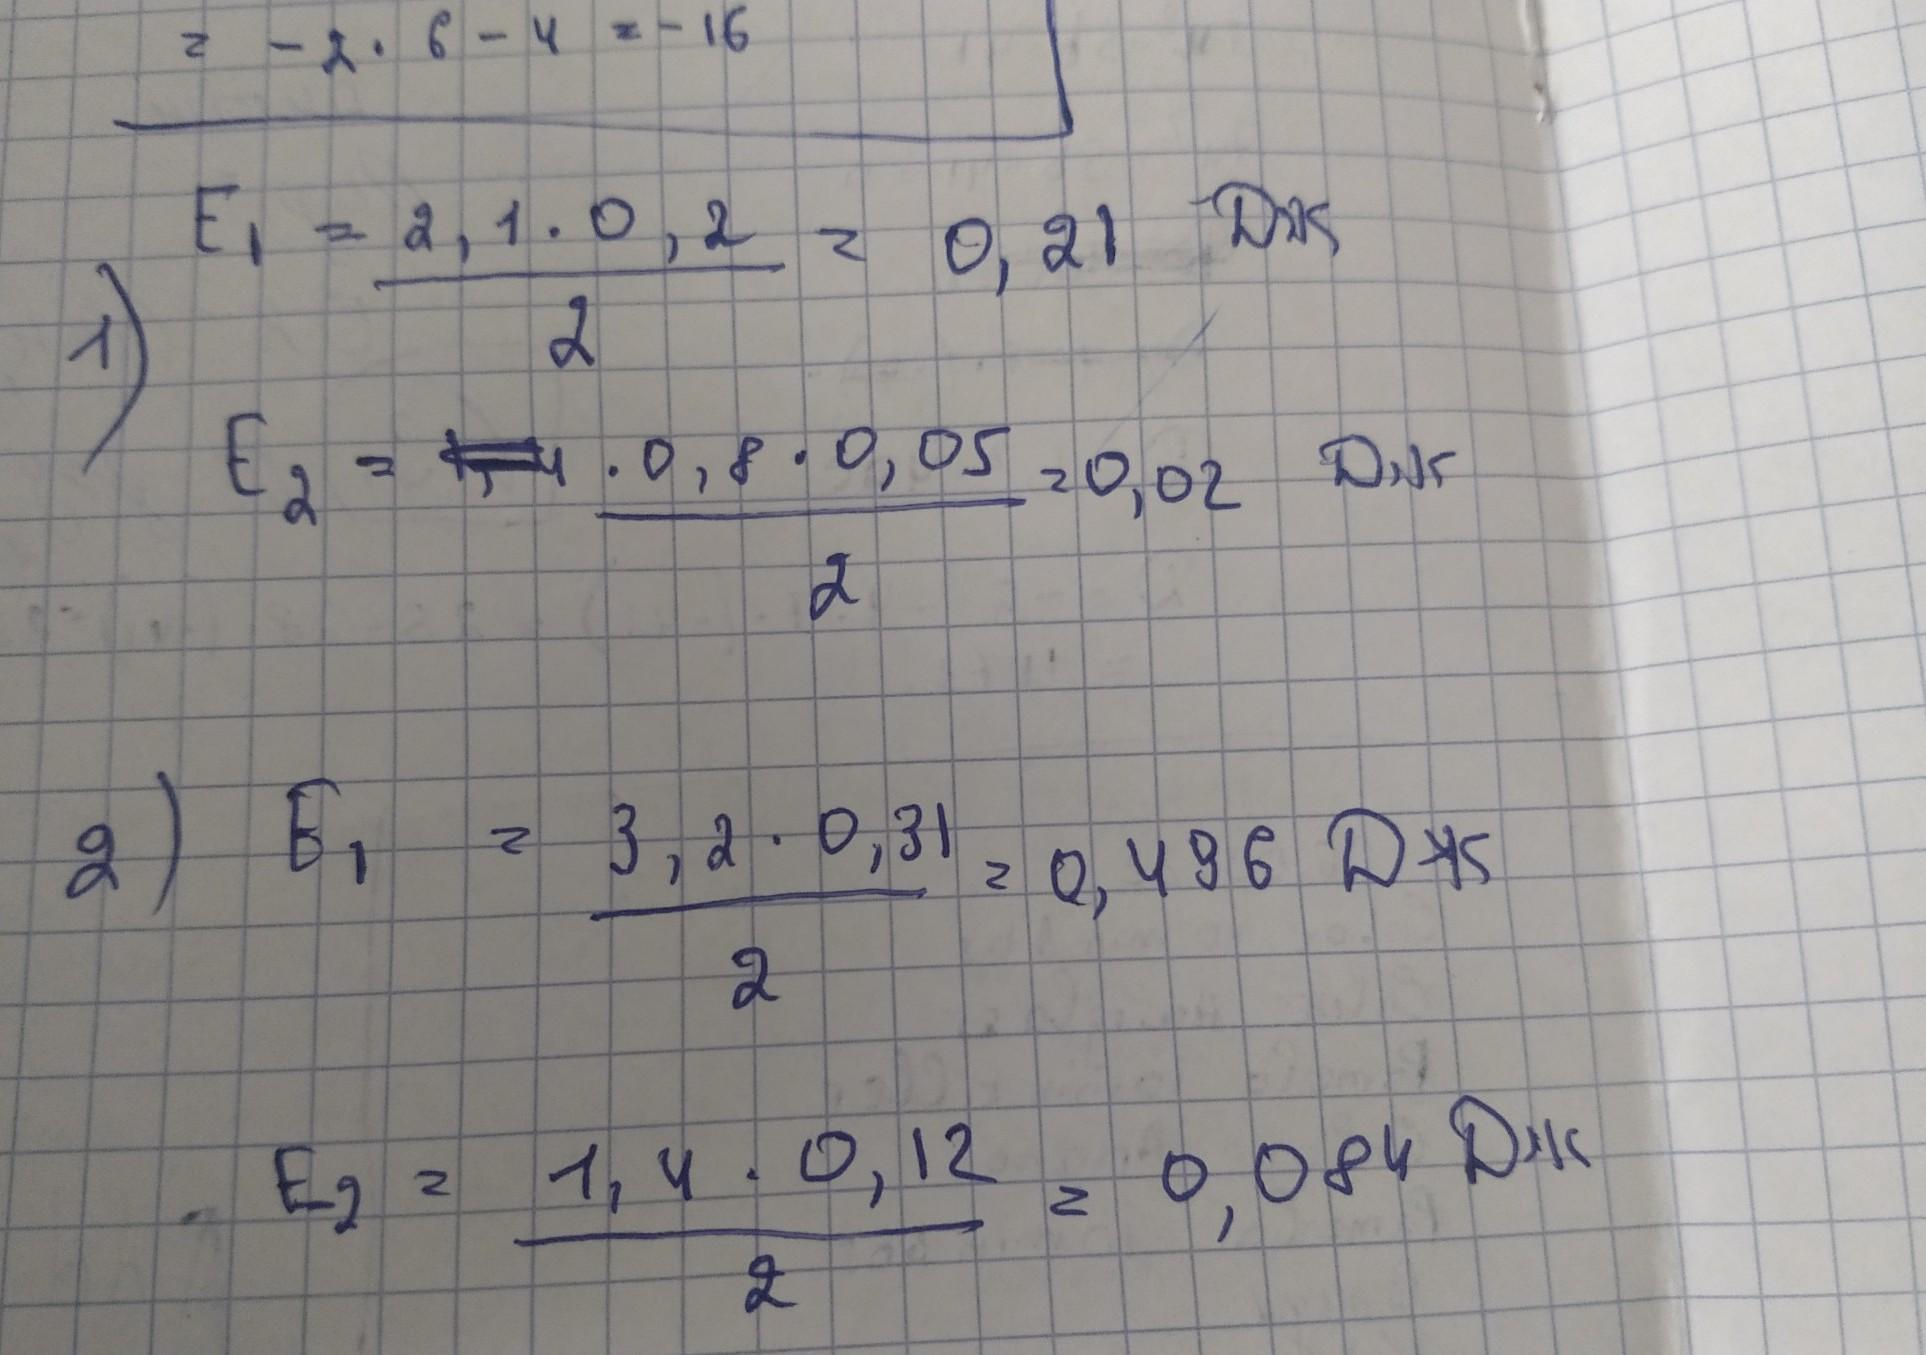 = -2 · 6 - 4 = -16
E1 = 2,1 · 0,2 = 0,21 Дж
2
1)
E2 = · 0,8 · 0,05 = 0,02 Дж
2
2) E1 = 3,2 · 0,31 = 0,496 Дж
2
E2 = 1,4 · 0,12 = 0,084 Дж
2